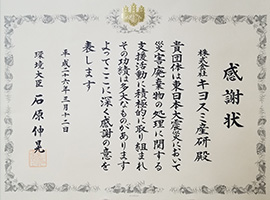 感謝状
株式会社キヨスミ産研殿
貴団体は東日本大震災において
災害廃棄物の処理に関する
支援活動に積極的に取り組まれ
その功績は多大なものがあります
よってここに深く感謝の意を
表します
平成二十六年三月十二日
環境大臣 石原伸晃